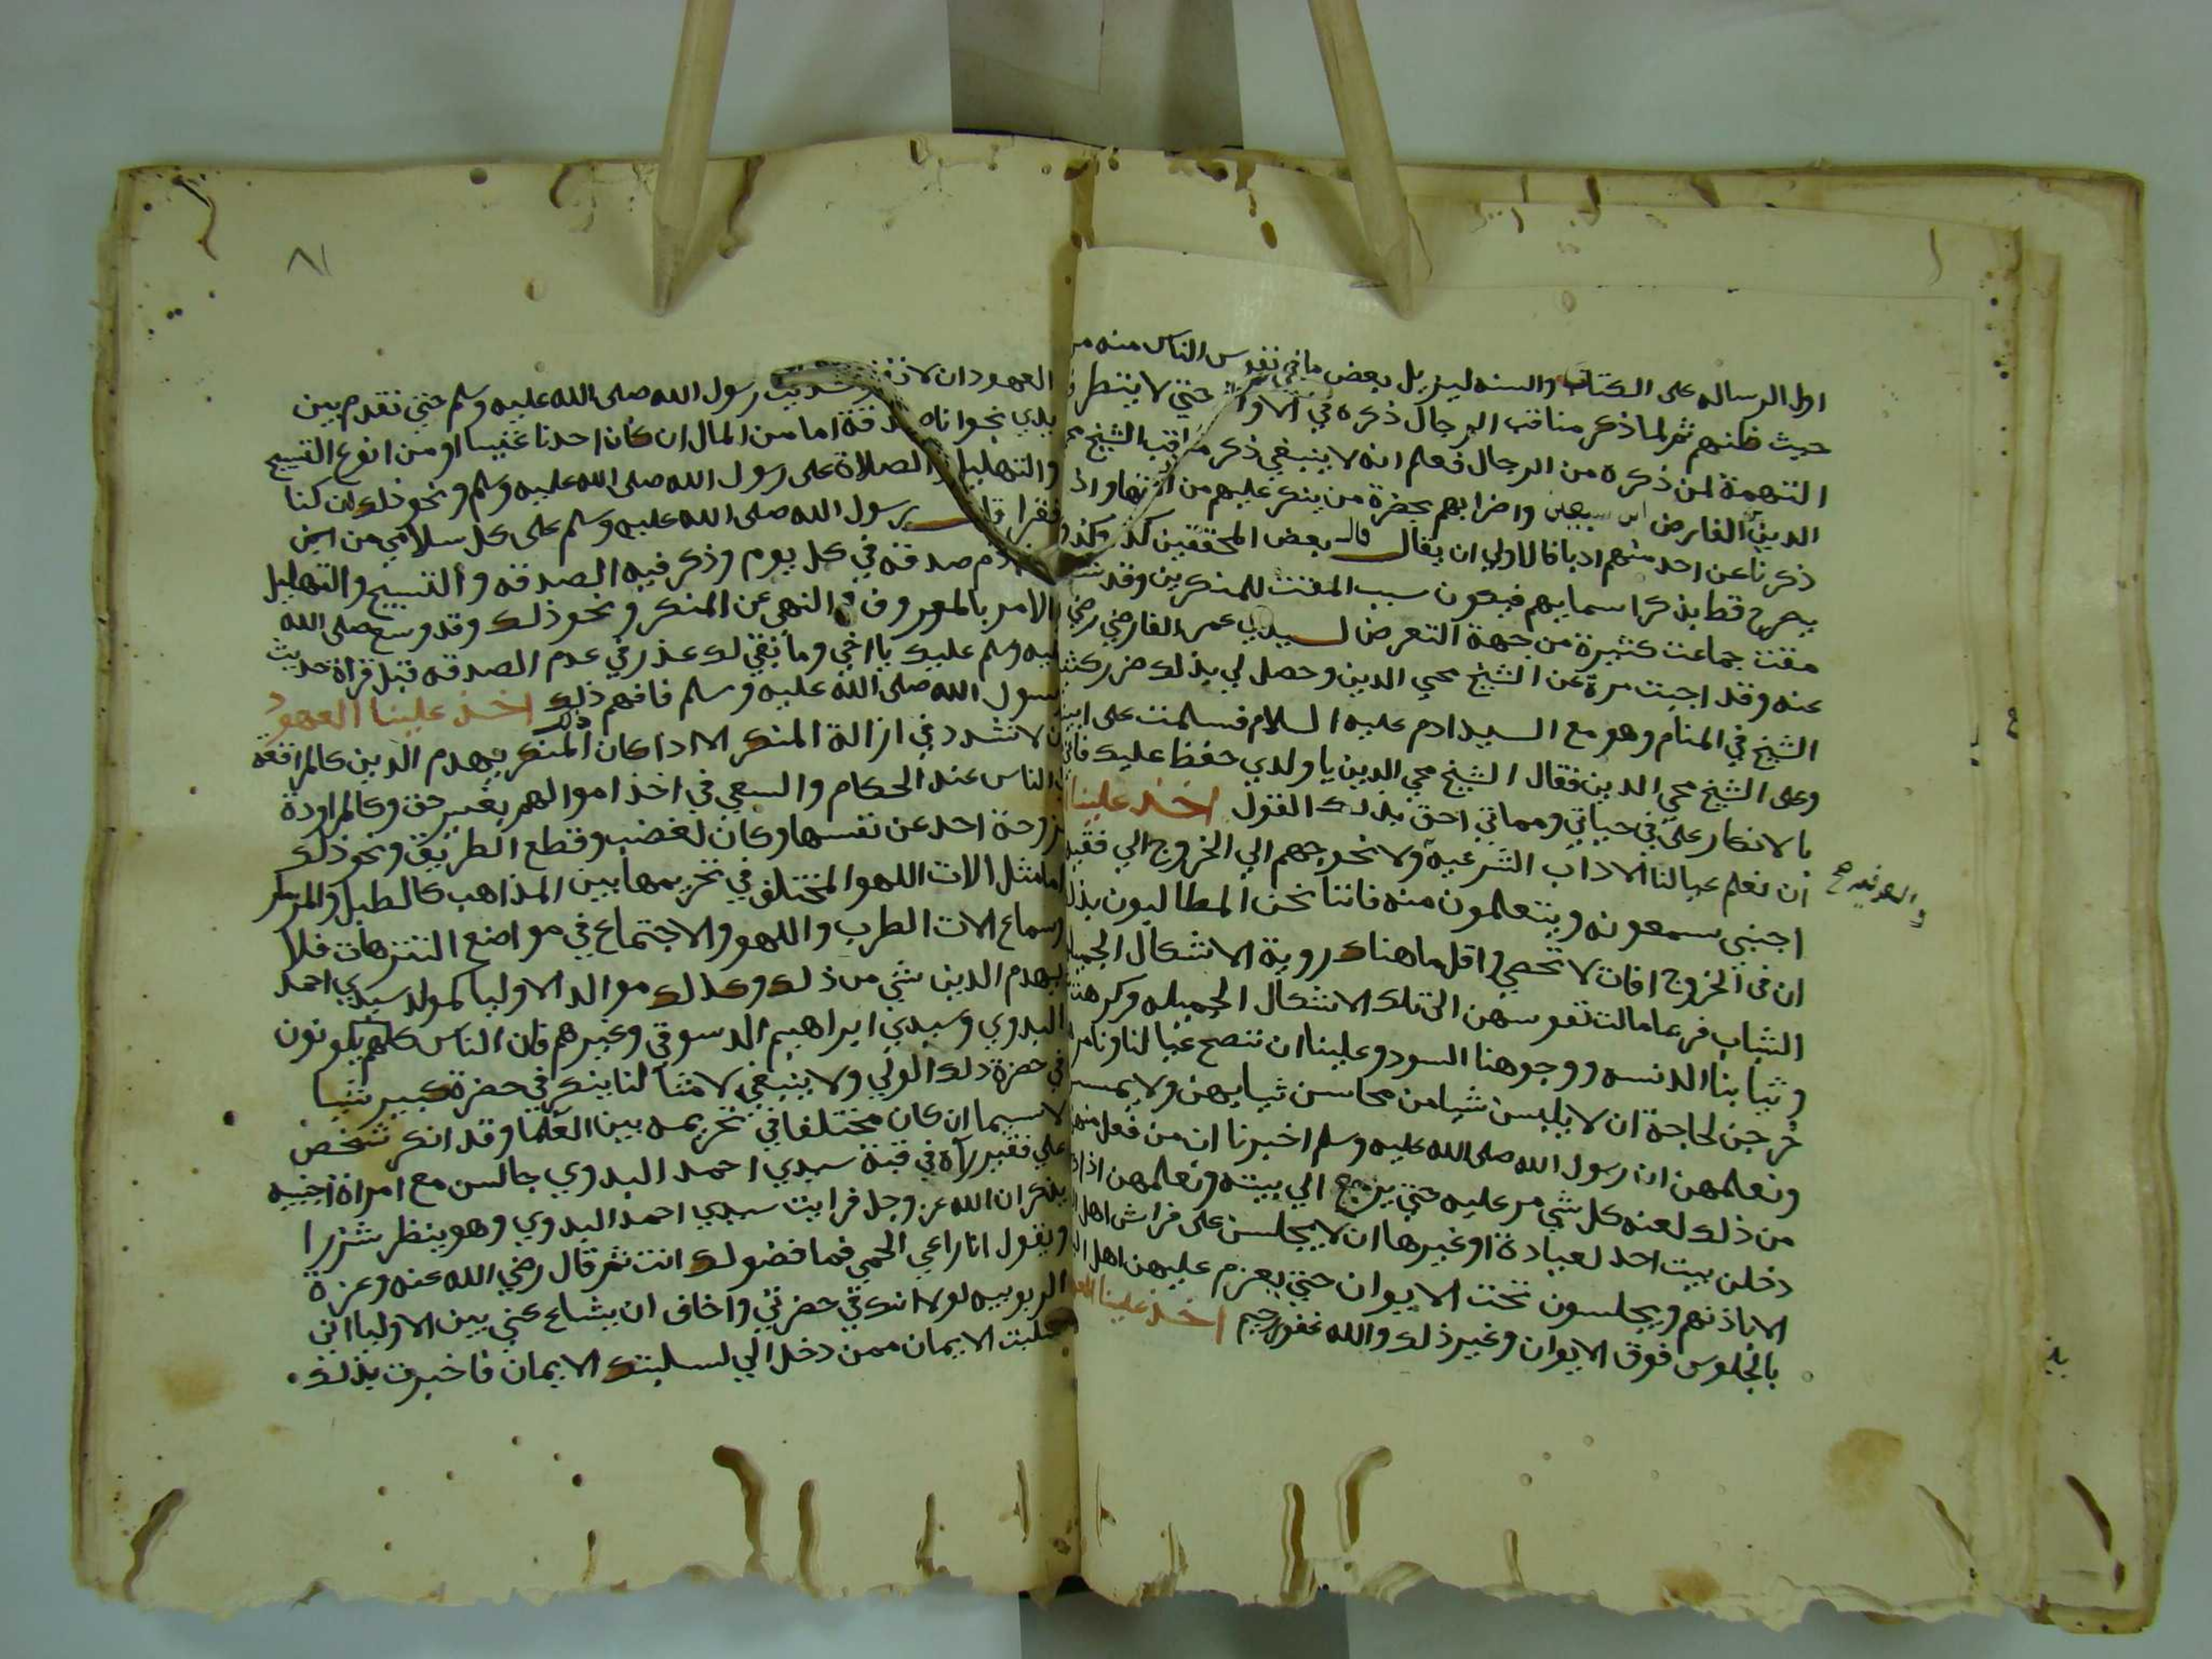 اول الرساله على الكتاب والسنه ليزيل بعض ما في نفوس الناس منه من
حيث ظنهم ثم لما ذكر مناقب الرجال ذكره في الاواخر حتي لا يتطرق
التهمة لمن ذكره من الرجال فعلم انه لا ينبغي ذكر مناقب الشيخ محي
الدين الفارض ابن سبعين واضرابهم بحضرة من ينكر عليهم من واذا
ذكرنا عن احد منهم ادبا فالاولي ان يقال قال بعض المحققين كذا وكذا
يصرح قط بذكر اسمايهم فيكون سبب المقت للمنكرين وقد
مقت جماعت كثيرة من جهة التعرض لسيدي عمر الفارضي رضي
عنه وقد اجبت مرة عن الشيخ محي الدين وحصل لي بذلك ضرر كثير
الشيخ في المنام وهو مع السيد ادم عليه السلام فسلمت على
وعلى الشيخ محي الدين فقال الشيخ محي الدين يا ولدي حفظ عليك فاني
بالانكار علي في حياتي ومماتي احق بذلك القول اخذ علينا
ان نعلم عيالنا الاداب الشرعيه ولا نحوجهم الي الخروج الي فقيه
اجنبي يسمعونه ويتعلمون منه فاننا نحن المطالبون بذلك
ان في الخروج افات لا تحصي اقل ما هناك روية الاشكال الجميله
الشباب فربما مالت نفوسهن الى تلك الاشكال الجميله وكرهت
وثيابنا الدنسه ووجوهنا السود وعلينا ان ننصح عيالنا ونامر
خرجن لحاجة ان لا يلبسن شيا من محاسن ثيابهن ولا يمسسن
ونعلمهن ان رسول الله صلى الله عليه وسلم اخبرنا ان من فعل منهن
من ذلك لعنه كل شي مر عليه حتي يرجع الي بيته ونعلمهن اذا
دخلن بيت احد لعيادة او غيرها ان لا يجلسن على فراش اهل
الا باذنهم ويجلسون تحت الايوان حتي يعزم عليهن اهل
بالجلوس فوق الايوان وغير ذلك والله غفور رحيم اخذ علينا
العهود ان لا رسول الله صلى الله عليه وسلم حتي نقدم بين
يدي نجوانا صدقة اما من المال ان كان احدنا غنيا او من انوع التسبيح
والتهليل والصلاة على رسول الله صلى الله عليه وسلم ونحو ذلك ان كنا
فقرا رسول الله صلى الله عليه وسلم على كل سلامي من ابن
ادم صدقة في كل يوم وذكر فيه الصدقه والتسبيح والتهليل
الامر بالمعروف والنهي عن المنكر ونحو ذلك وقد وسع صلى الله
عليه وسلم عليك يا اخي وما بقي لك عذر في عدم الصدقه قبل قراة حديث
رسول الله صلى الله عليه وسلم فافهم ذلك اخذ علينا العهود
ان لا نشدد في ازالة المنكر الا اذا كان ذلك المنكر يهدم الدين كالمرافعة
في الناس عند الحكام والسعي في اخذ اموالهم بغير حق وكالمراودة
زوجة احد عن نفسها وكان لغضب وقطع الطريق ونحو ذلك
اما مثل الات اللهو المختلف في تحريمها بين المذاهب كالطبل والمزمار
وسماع الات الطرب واللهو والاجتماع في مواضع التنزهات فلا
يهدم الدين شي من ذلك وكذلك موالد الاوليا كمولد سيدي احمد
البدوي وسيدي ابراهيم الدسوقي وغيرهم فان الناس كلهم يكونون
في حضرة ذلك الولي ولا ينبغي لامثالنا ينكر في حضرة كبير شيا
لا سيما ان كان مختلفا في تحريمه بين العلما وقد انكر شخص
علي فقير رآه في قبة سيدي احمد البدوي جالس مع امراة اجنبيه
يذكران الله عز وجل فرايت سيدي احمد البدوي وهو ينظر شزرا
ويقول انا راعي الحمي فما فضولك انت ثم قال رضي الله عنه وعزة
الربوبيه لولا انك في حضرتي واخاف ان يشاع عني بين الاوليا اني
سلبت الايمان ممن دخل الي لسلبتك الايمان فاخبرت بذلك